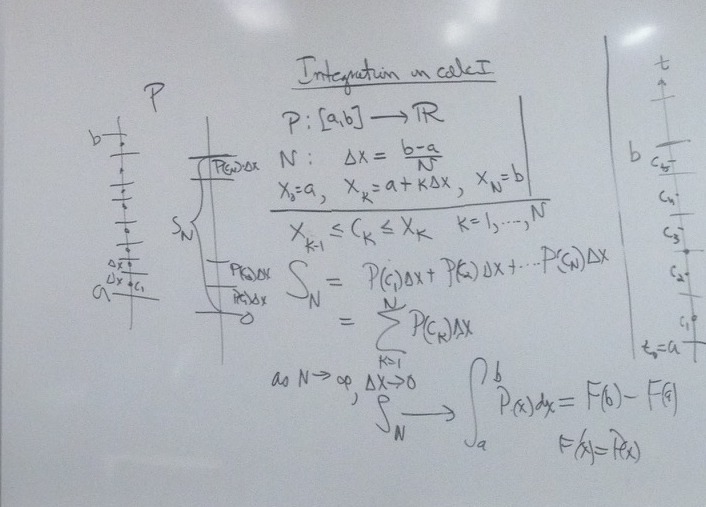 Integration in calc I
P
P: [a,b] → ℝ
N: Δx = (b-a)/N
x₀=a, x_K=a+KΔx, x_N=b
x_{K-1} ≤ C_K ≤ x_K K=1,...,N
S_N = P(C₁)Δx + P(C₂)Δx + ... P(C_N)Δx
= ∑_{K=1}^{N} P(C_K)Δx
as N→∞, Δx→0
S_N → ∫_a^b P(x)dx = F(b) - F(a)
F'(x)=P(x)
b
Δx
Δx
C₁
a
P(C_N)·Δx
S_N
P(C₂)Δx
P(C₁)Δx
0
t
b
C₅
C₄
C₃
C₂
C₁
t₀=a